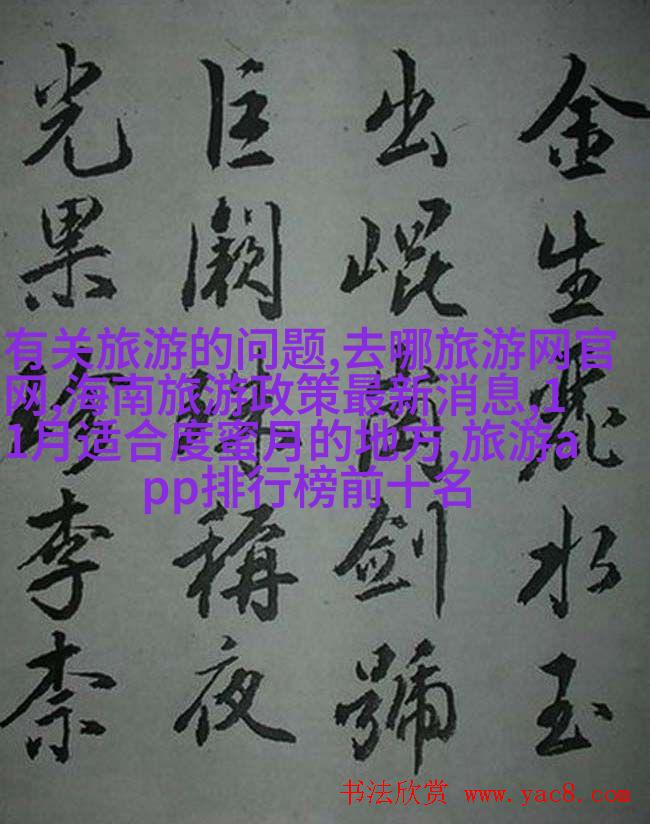 金生麗水玉
出崐劍號
巨闕珠稱夜
光果珍李柰
有关旅游的问题,去哪旅游网官
网,海南旅游政策最新消息,1
1月适合度蜜月的地方,旅游a
pp排行榜前十名
书法欣赏 www.yac8.com